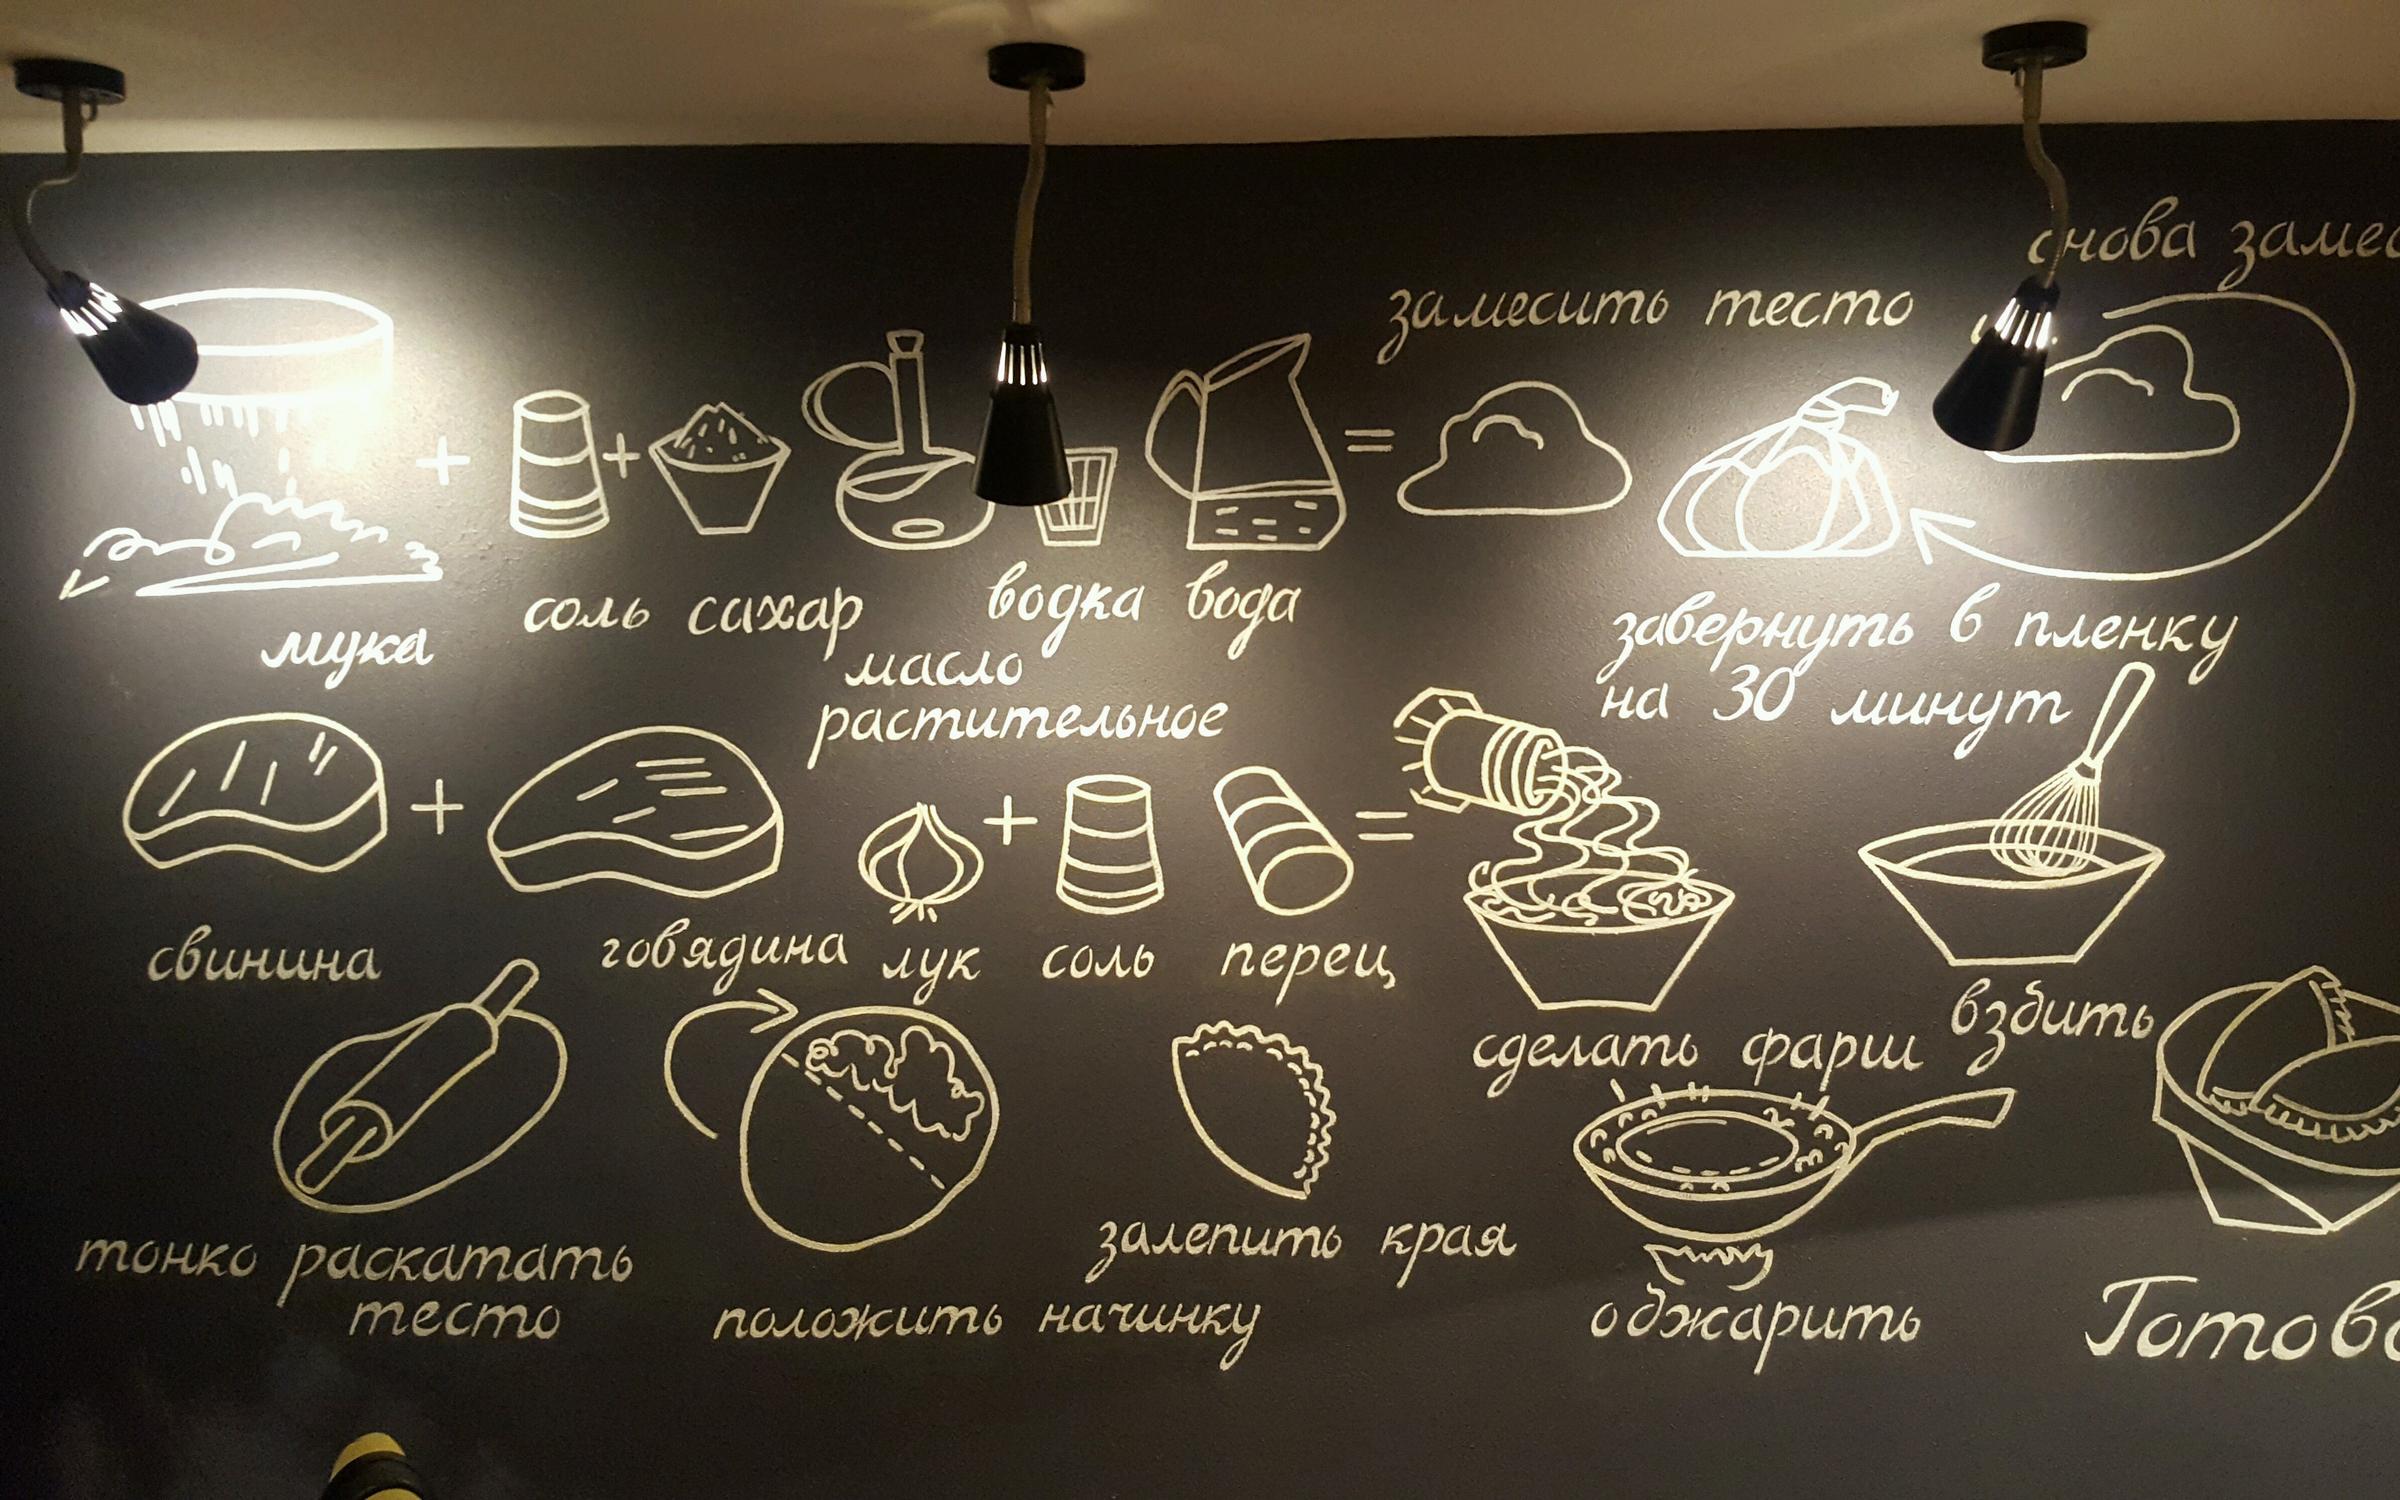 снова
замесить тесто
мука
соль сахар
водка вода
масло
растительное
завернуть в пленку
на 30 минут
свинина
говядина
лук
соль
перец
сделать фарш
взбить
тонко раскатать
тесто
положить начинку
залепить края
обжарить